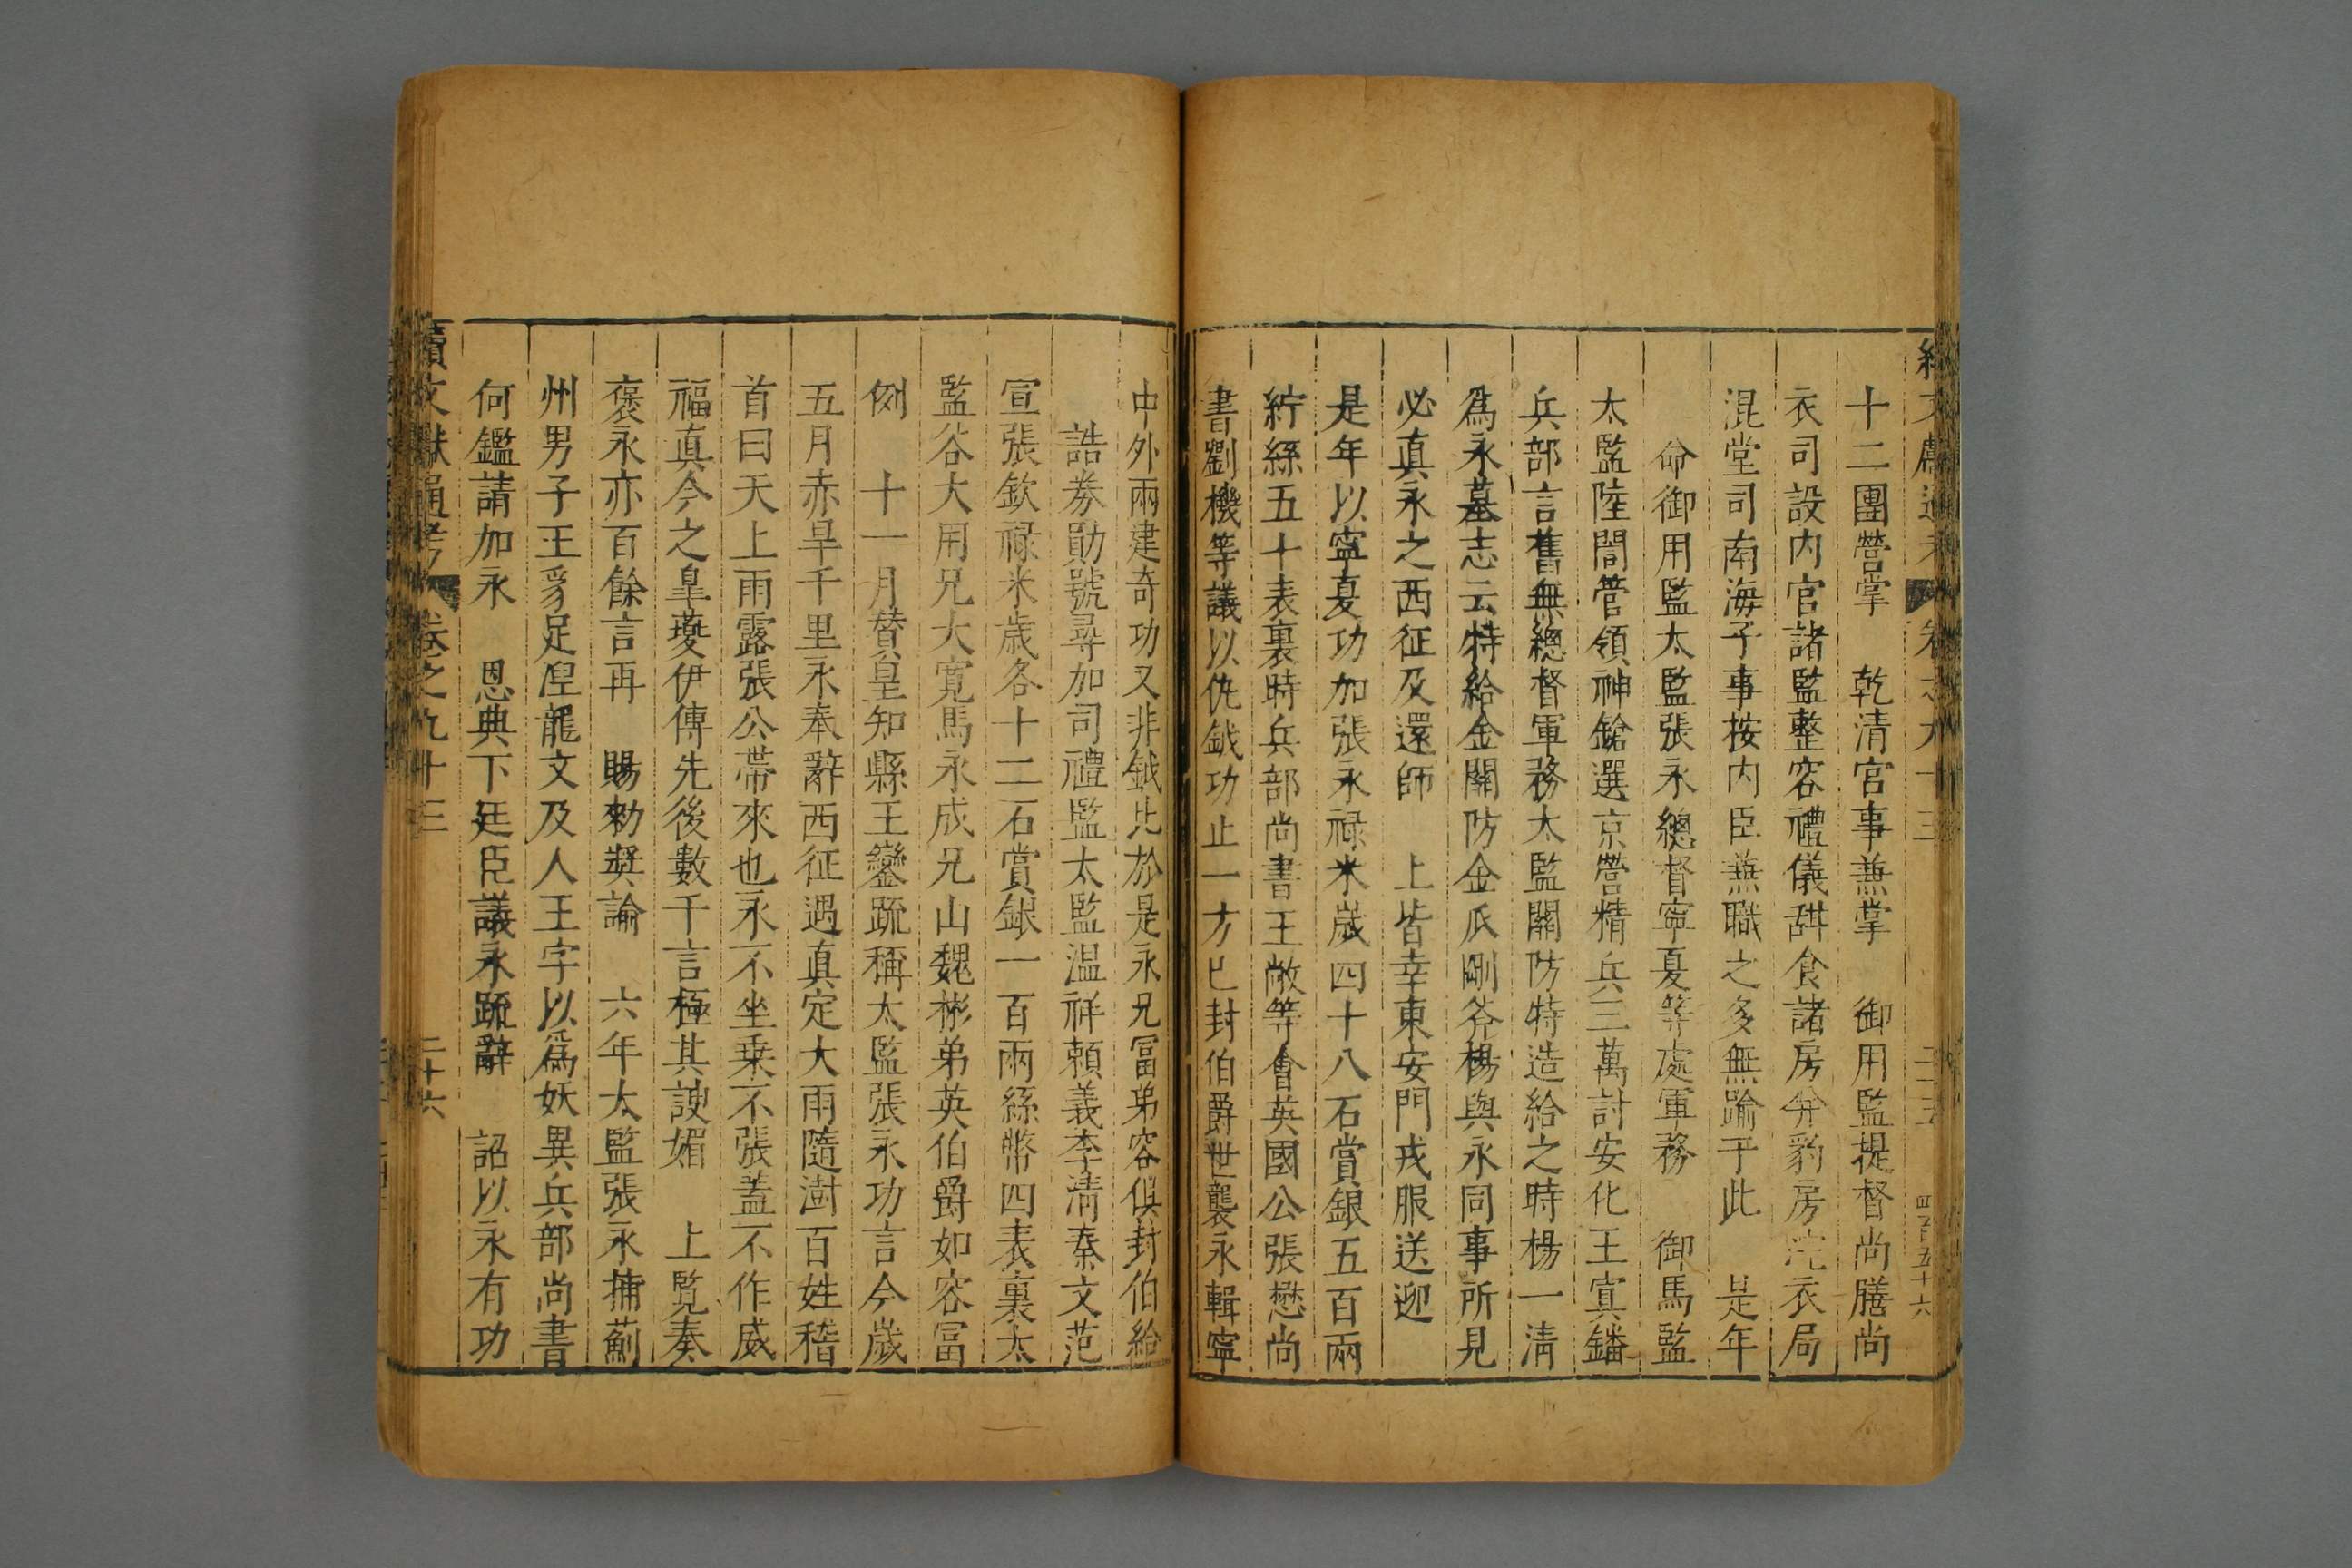 十二團營掌　乾清宮事兼掌　御用監提督尚膳尚
衣司設内官諸監整容禮儀甜食諸房分豹房浣衣局
混堂司南海子事按内臣兼職之多無踰于此　是年
命御用監太監張永總督寧夏等處軍務　御馬監
太監陸誾管領神鎗選京營精兵三萬討安化王寘鐇
兵部言舊無總督軍務太監關防特造給之時楊一清
爲永墓志云特給金關防金瓜剛斧楊與永同事所見
必真永之西征及還師　上皆幸東安門戎服送迎
是年以寧夏功加張永禄米歲四十八石賞銀五百兩
紵絲五十表裏時兵部尚書王敞等會英國公張懋尚
書劉機等議以仇鉞功止一方已封伯爵世襲永輯寧
中外兩建奇功又非鉞比於是永兄冨弟容俱封伯給
誥券勛號尋加司禮監太監温祥頼義李清秦文范
宣張欽禄米歲各十二石賞銀一百兩絲幣四表裏太
監谷大用兄大寛馬永成兄山魏彬弟英伯爵如容冨
例　十一月賛皇知縣王鑾疏稱太監張永功言今歲
五月赤旱千里永奉辭西征遇真定大雨隨澍百姓稽
首曰天上雨露張公帶來也永不坐乗不張蓋不作威
福真今之臯夔伊傅先後數千言極其諛媚　上覧奏
褒永亦百餘言再　賜勑奬諭　六年太監張永捕薊
州男子王豸足湼龍文及人王字以爲妖異兵部尚書
何鑑請加永　恩典下廷臣議永疏辭　詔以永有功
續文獻通考　卷之九十三　二十六